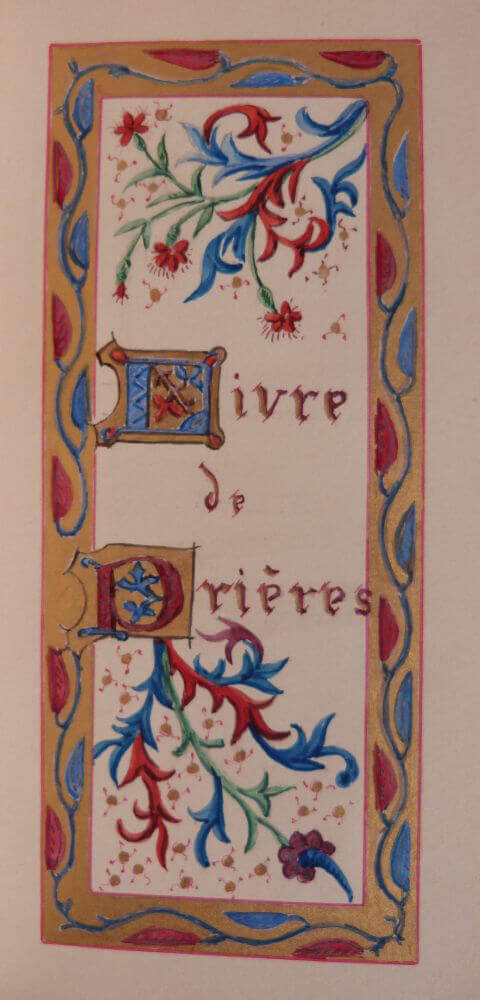 Livre
de
Prières